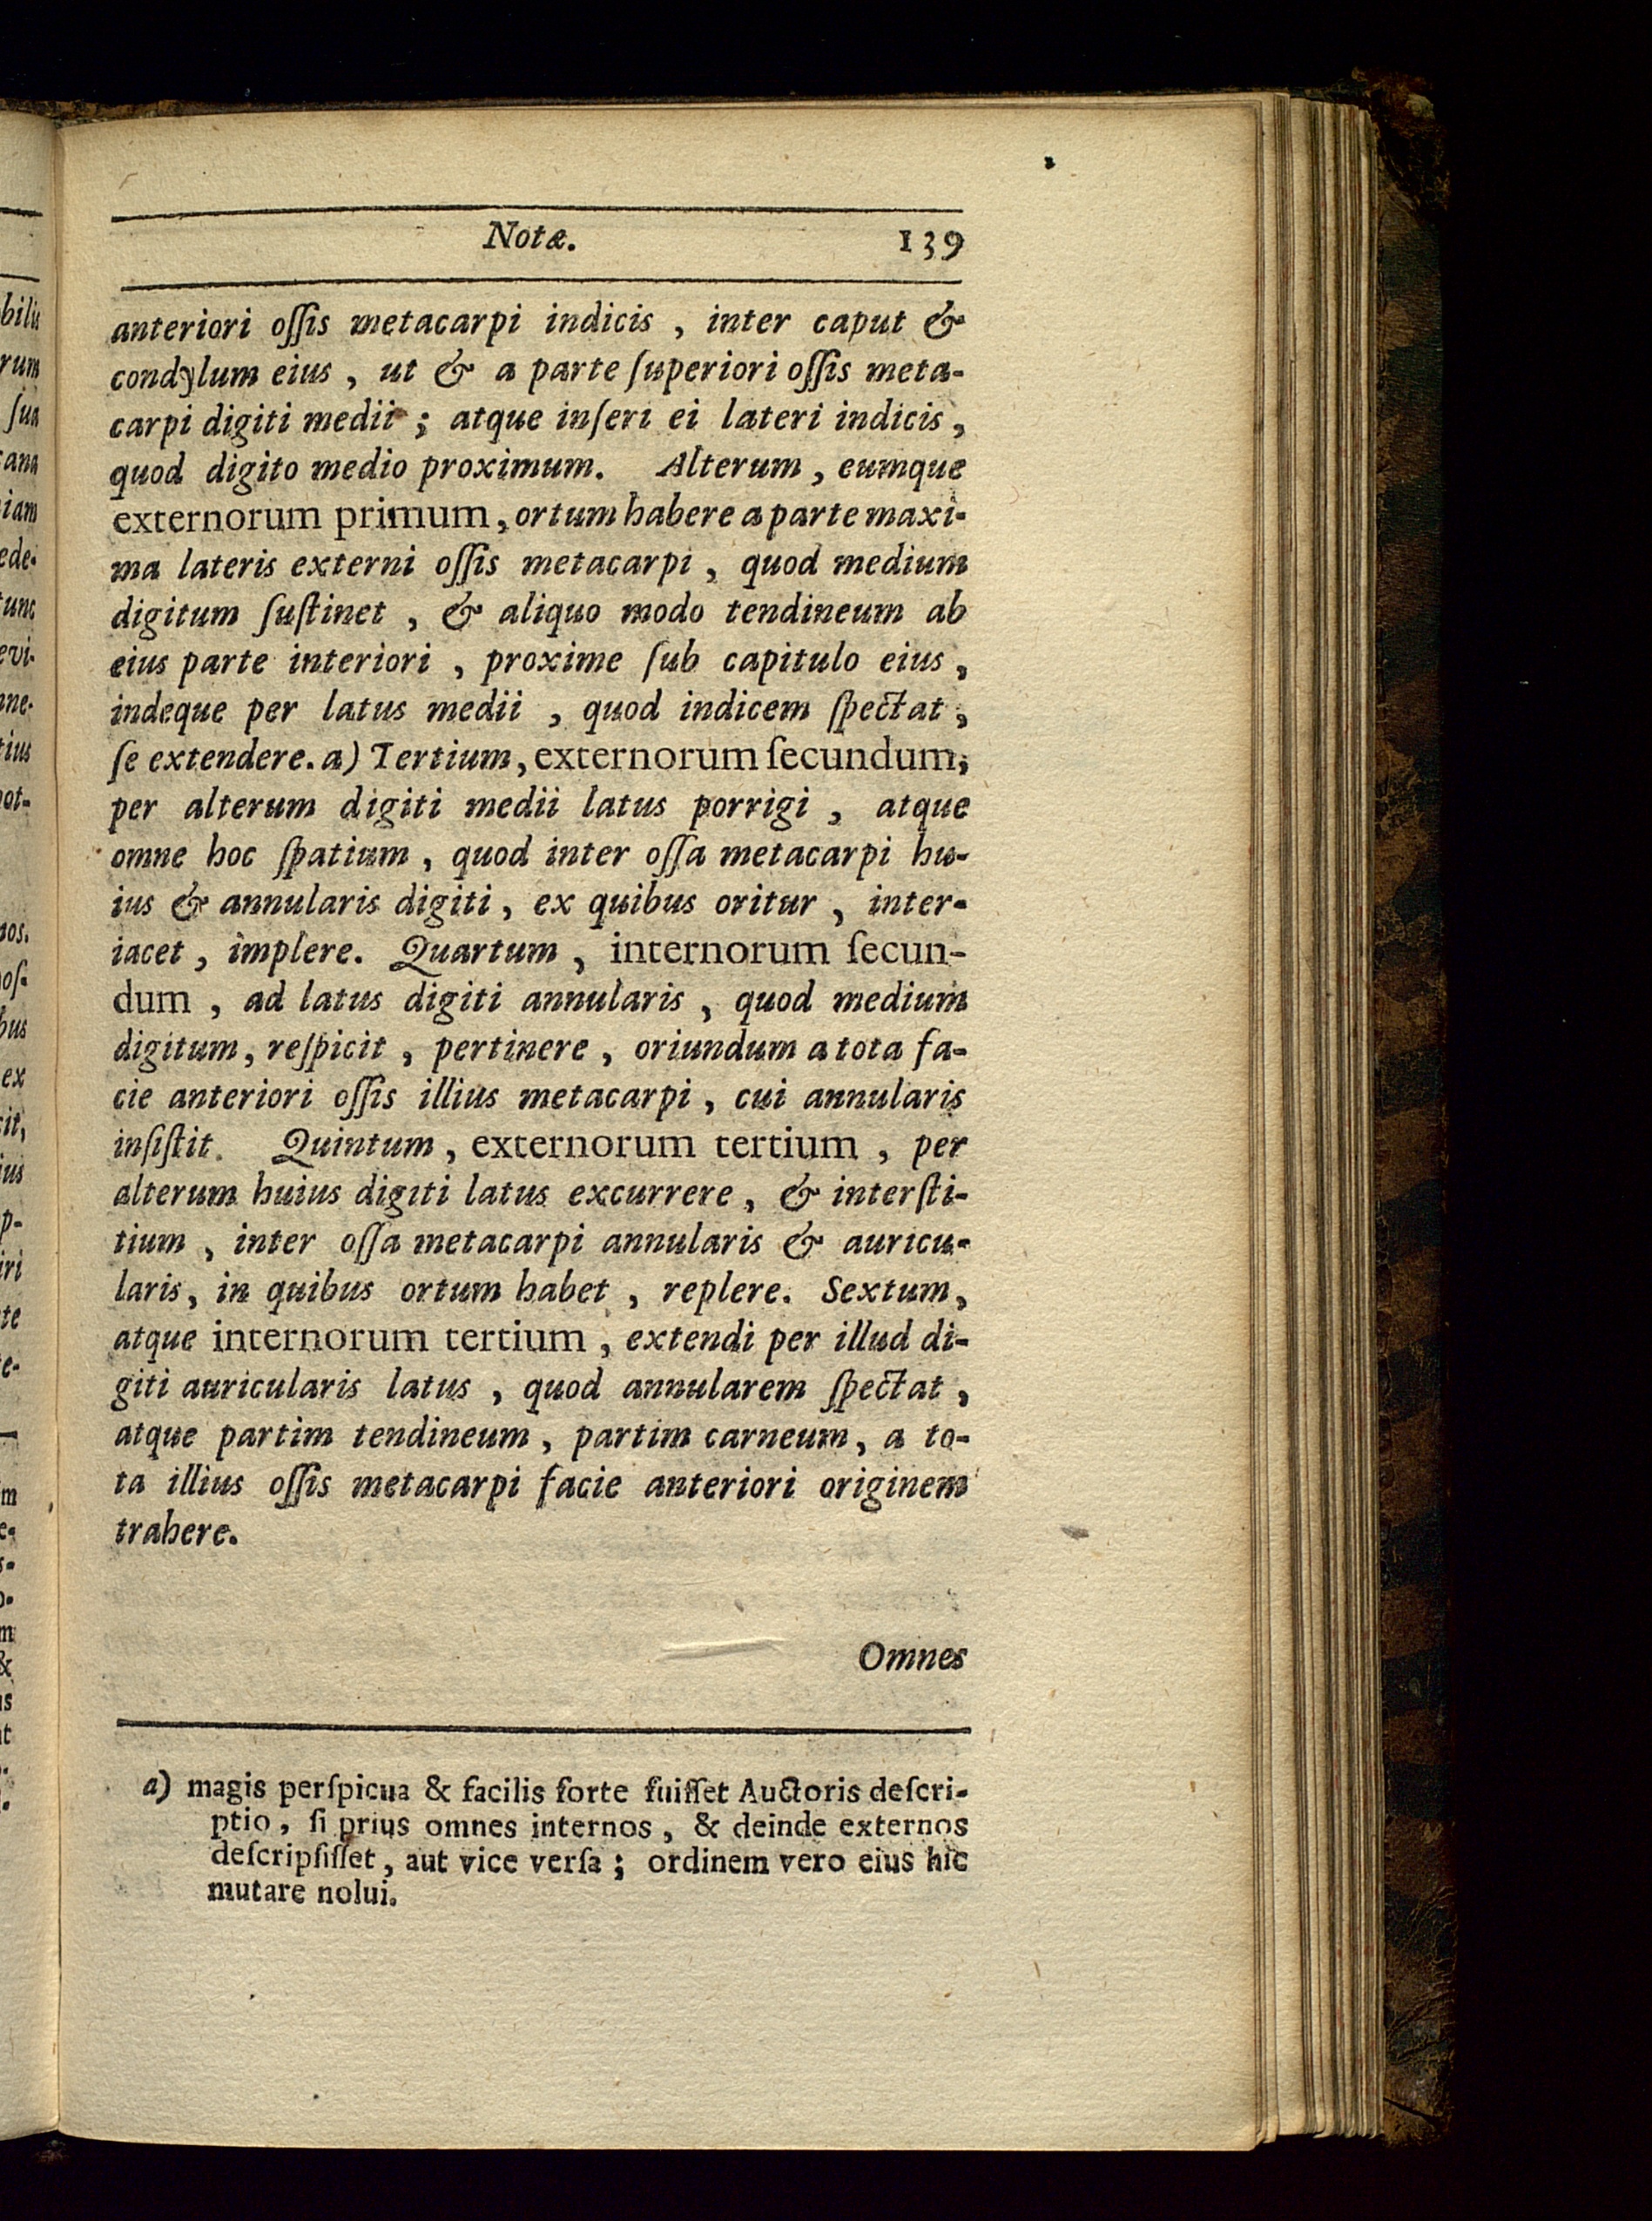 Notæ. 139
anteriori oſſis metacarpi indicis , inter caput &
condylum eius , ut & a parte ſuperiori oſſis meta-
carpi digiti medii ; atque inſeri ei lateri indicis,
quod digito medio proximum. Alterum , eumque
externorum primum, ortum habere a parte maxi-
ma lateris externi oſſis metacarpi , quod medium
digitum ſuſtinet , & aliquo modo tendineum ab
eius parte interiori , proxime ſub capitulo eius,
indeque per latus medii , quod indicem ſpectat,
ſe extendere. a) Tertium, externorum ſecundum,
per alterum digiti medii latus porrigi , atque
omne hoc ſpatium , quod inter oſſa metacarpi hu-
ius & annularis digiti, ex quibus oritur , inter-
iacet , implere. Quartum , internorum ſecun-
dum , ad latus digiti annularis , quod medium
digitum, reſpicit , pertinere , oriundum a tota fa-
cie anteriori oſſis illius metacarpi , cui annularis
inſiſtit. Quintum , externorum tertium , per
alterum huius digiti latus excurrere , & interſti-
tium , inter oſſa metacarpi annularis & auricu-
laris, in quibus ortum habet , replere. Sextum,
atque internorum tertium , extendi per illud di-
giti auricularis latus , quod annularem ſpectat ,
atque partim tendineum , partim carneum, a to-
ta illius oſſis metacarpi facie anteriori originem
trahere.
Omnes
a) magis perſpicua & facilis forte fuiſſet Auctoris deſcri-
ptio , ſi prius omnes internos , & deinde externos
deſcripſiſſet , aut vice verſa ; ordinem vero eius hic
mutare nolui.